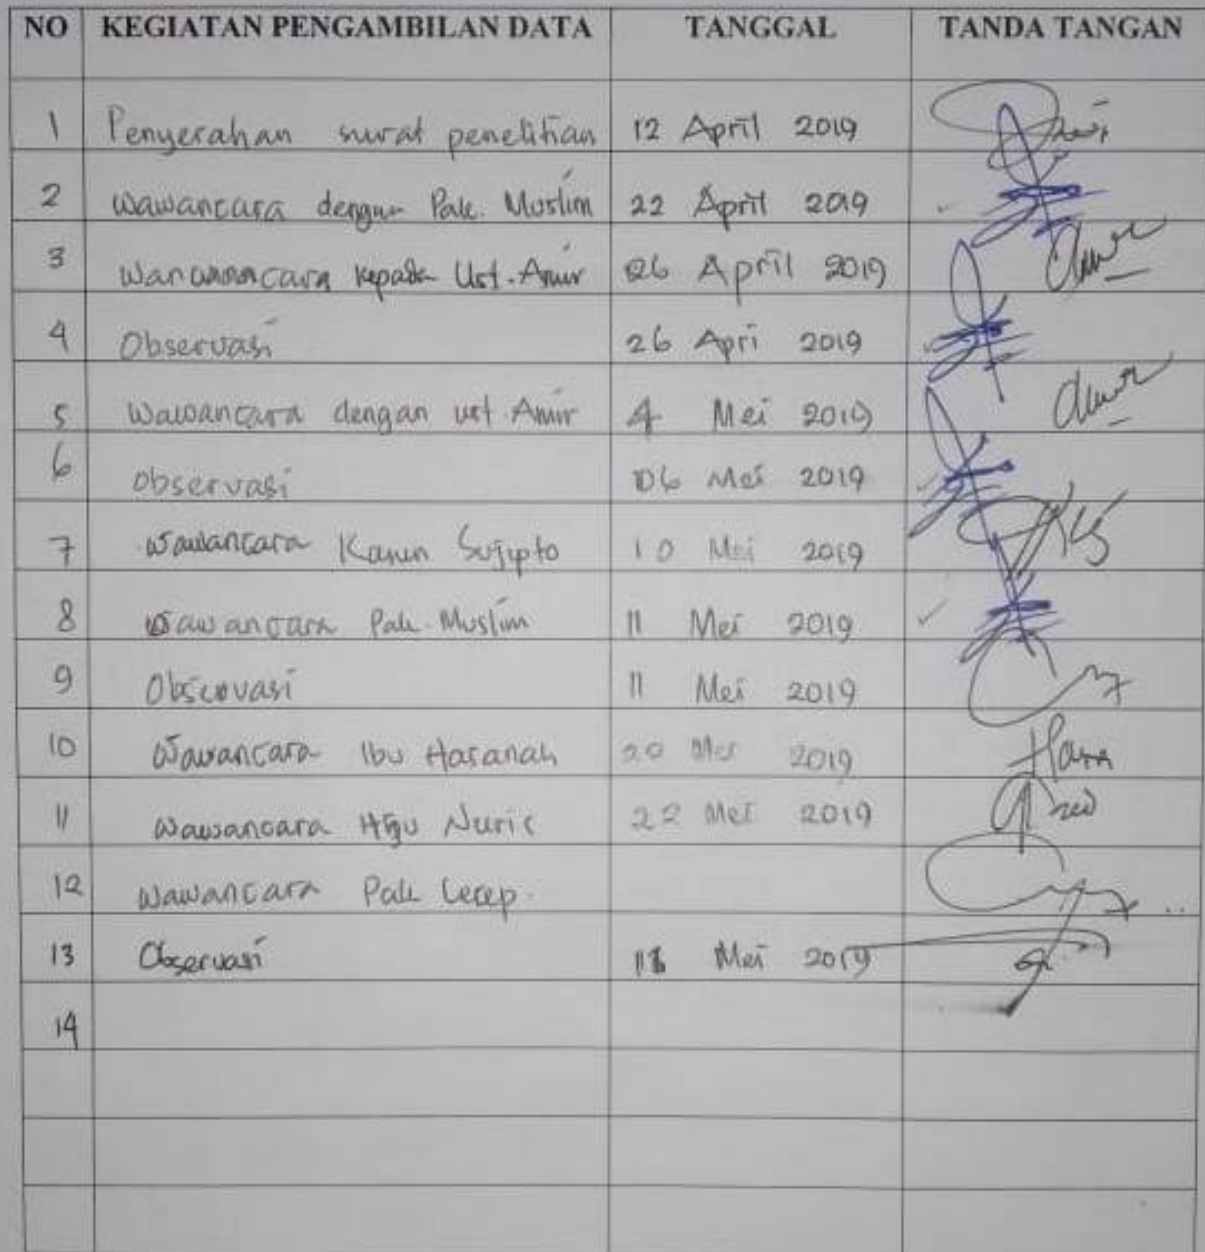 NO KEGIATAN PENGAMBILAN DATA TANGGAL TANDA TANGAN
1 Penyerahan surat penelitian 12 April 2019
2 Wawancara dengan Pak. Muslim 22 April 2019
3 kepada Ust. Amir 26 April 2019
4 Observasi 26 Apri 2019
5 Wawancara dengan ust Amir 4 Mei 2019
6 Observasi 06 Mei 2019
7 Wawancara 10 Mei 2019
8 Wawancara Pak. Muslim 11 Mei 2019
9 Observasi 11 Mei 2019
10 Wawancara Ibu Hasanah 20 Mei 2019
11 Wawancara 22 Mei 2019
12 Wawancara Pak Cecep.
13 Observasi Mei 2019
14